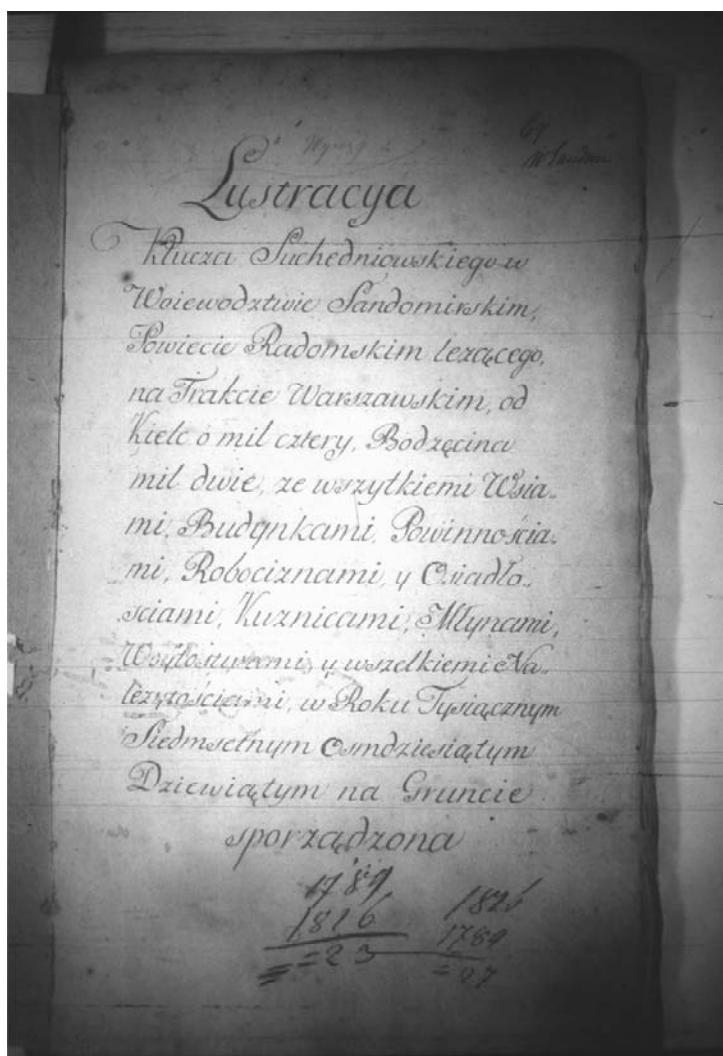 69
Lustracya
Klucza Suchedniowskiego w
Woiewodztwie Sandomirskim,
Powiecie Radomskim lezącego,
na Trakcie Warszawskim, od
Kielc o mil cztery, Bodzęcina
mil dwie, ze wszytkiemi Wsia..
mi, Budynkami, Powinnościa.
mi, Robociznami, y Osiadło..
sciami, Kuznicami, Młynami,
Woytostwami, y wszelkiemi Na..
lezytościami, w Roku Tysiącznym
Siedmsetnym Osmdziesiątym
Dziewiątym na Gruncie
sporządzona
1789 1826
1816 1789
=23 =27